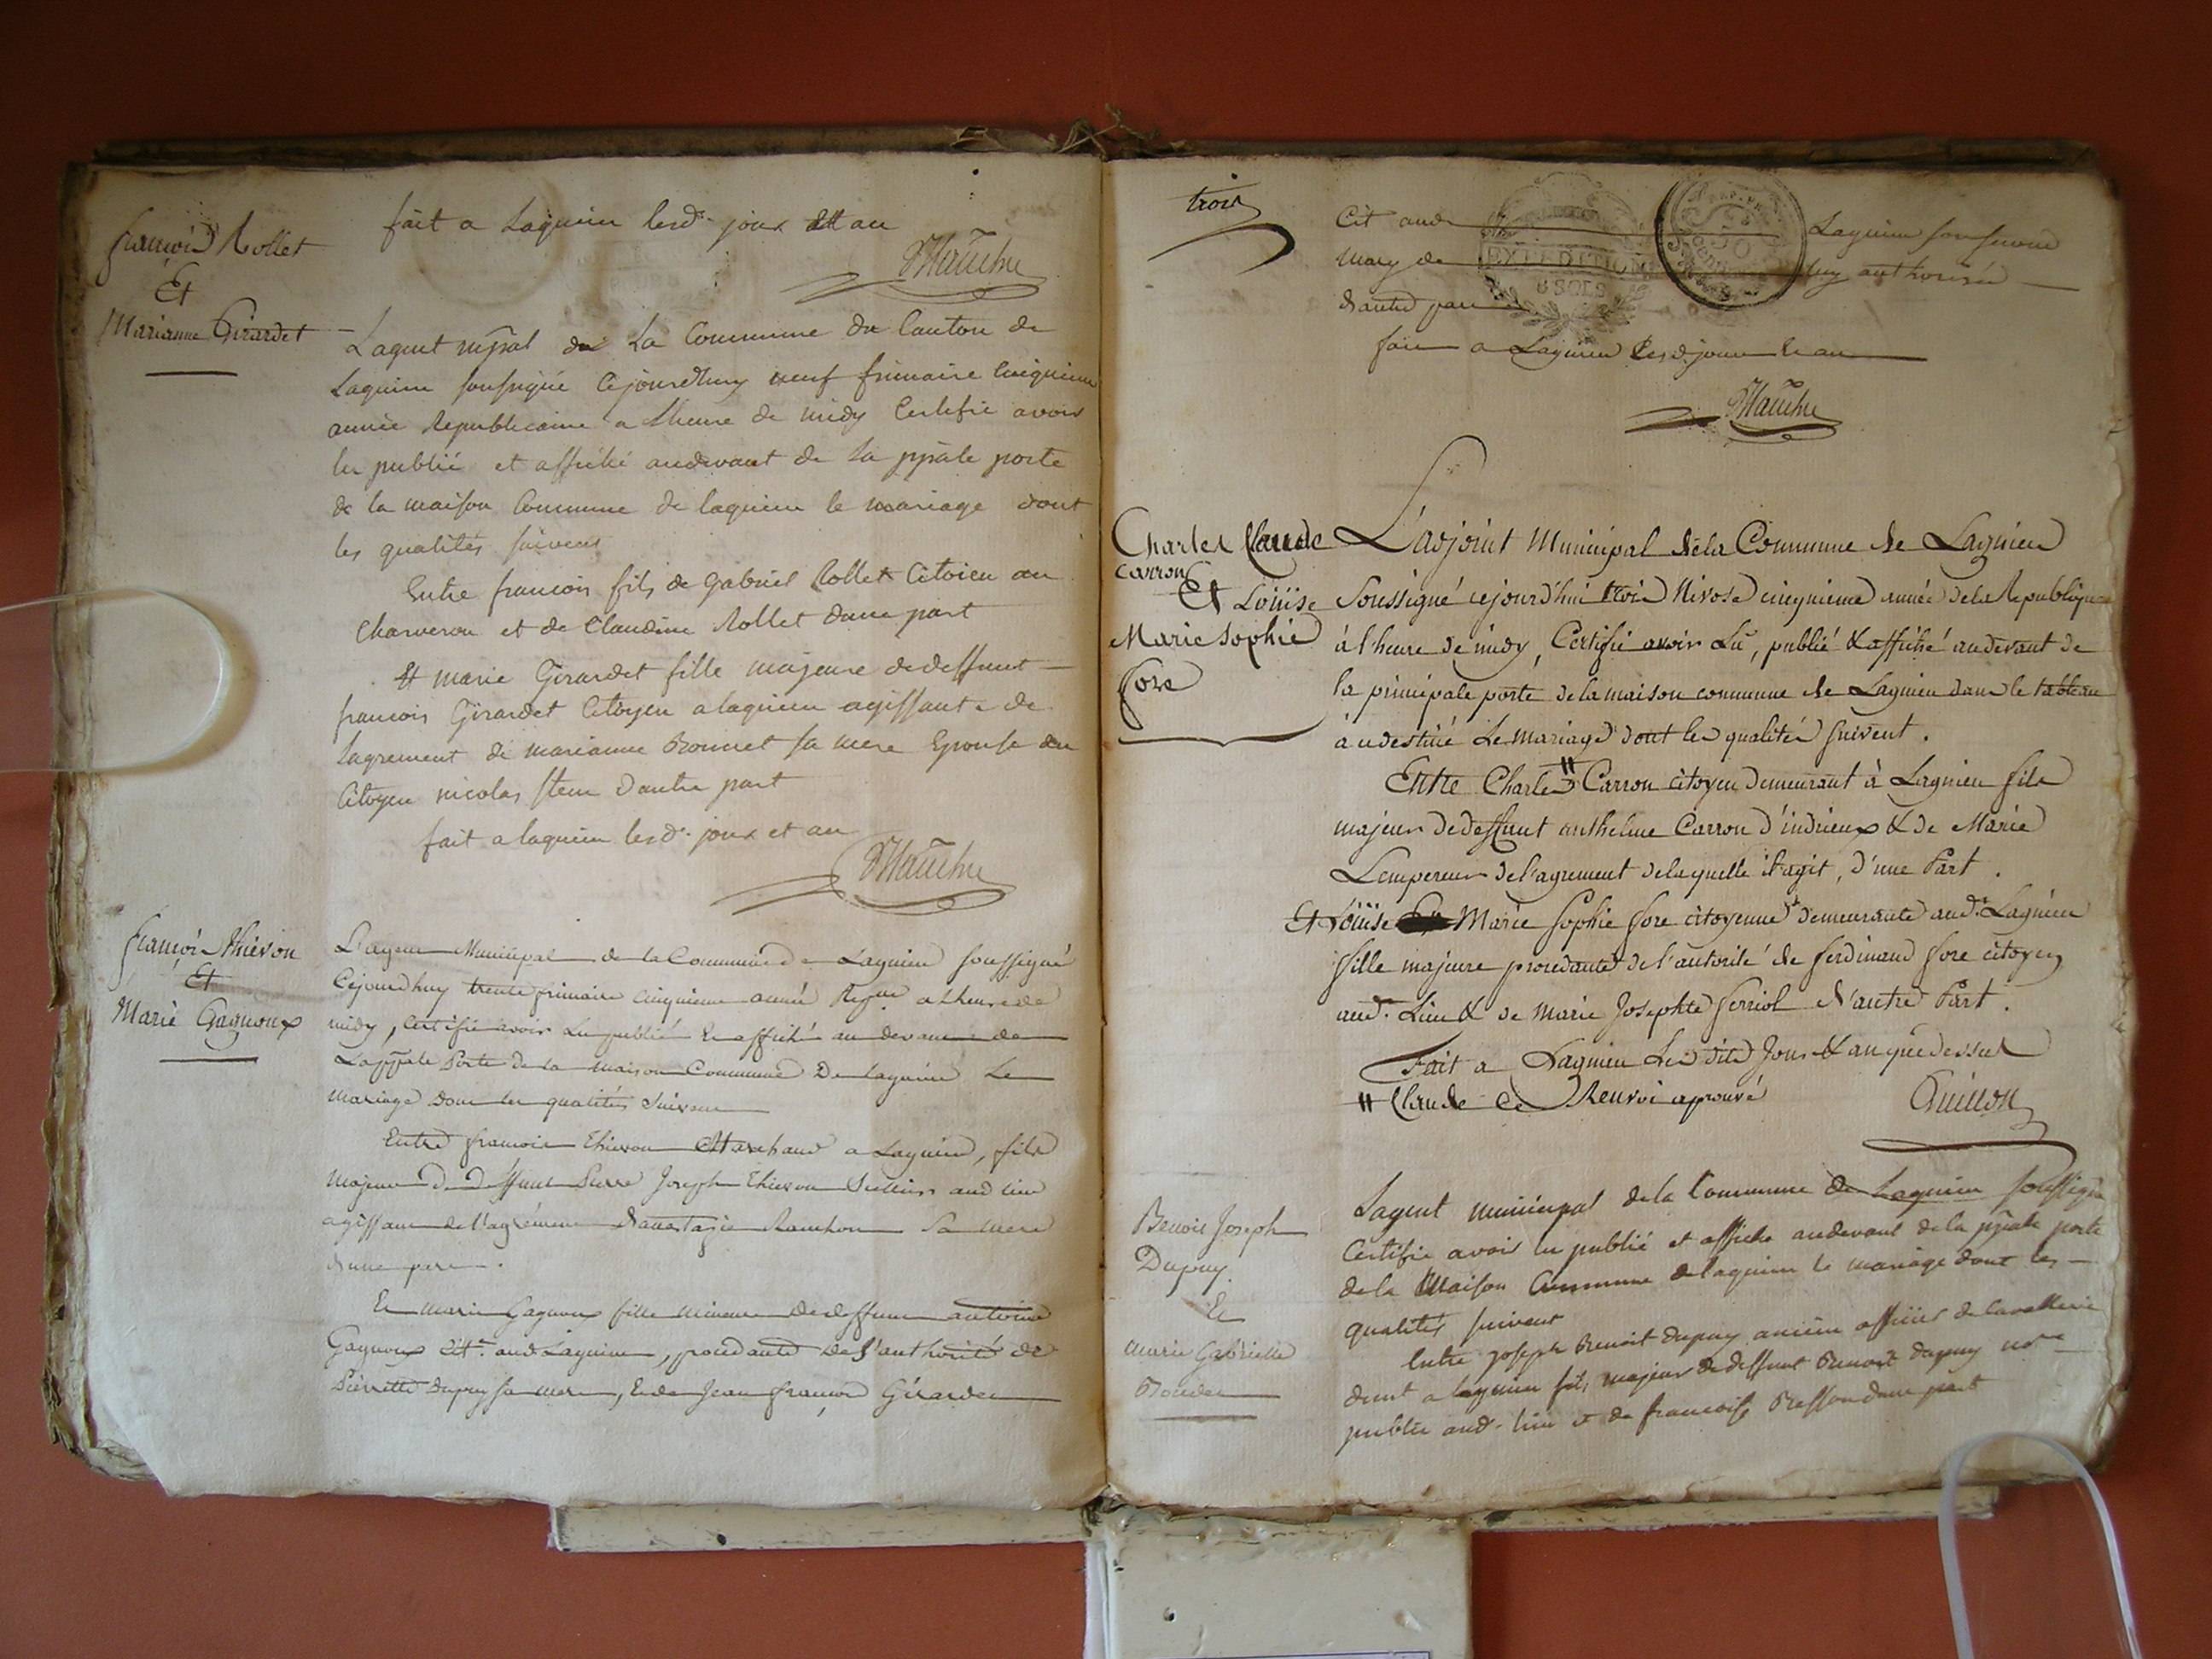 fait a Lagnieu lesd. jour et an
françois Rollet
Et
Marianne Girardet
Lagent mpal de La Commune du Canton de
Lagnieu soussigné Cejourdhuy neuf frimaire Cinquieme
année Republicaine a Lheure de midy Certifie avoir
lu publié et affiché audevant de la ppale porte
de la maison Commune de lagnieu le mariage dont
les qualités suivent
Entre francois fils de gabriel Rollet Citoien au
Charveron et de Claudine Rollet dune part
Et marie Girardet fille majeure dedeffunt
francois Girardet Citoyen a lagnieu agissante de
lagrement de marianne Bonnet sa mere Epouse du
Citoyen nicolas dautre part
fait a lagnieu lesd. jour et an
françois Thievon
Et
Marie Gagnoux
L'agent Municipal de la Commune de Lagnieu soussigné
Cejourdhuy trente frimaire cinquieme année a Lheure de
midy, Certifie avoir Lu publié Et affiché au devant de
Lappale Porte de la maison Commune De lagnieu Le
Mariage Dont les qualités Suivent
Entre francois Thievon Marchand a Lagnieu, fils
Majeur De Deffunt Pierre Joseph Thievon aud lieu
agissant de l'agrément danastazie Rambon Sa mere
dune part.
Et marie Gagnoux fille mineure dedeffunt antoine
Gagnoux Cit. aud Lagnieu, procedante de l'authorité de
Pierrette Dupuy sa mere, Et de Jean françois Girardet
trois
Cit aud Lagnieu son second
Mary de authorisée
dautre part
EXPEDITION
6 SOLS
fait a Lagnieu Lesd. jour Et an
Charles Claude
Carron
Et Loüise
Marie Sophie
fore
L'adjoint Municipal dela Commune de Lagnieu
Soussigné cejourd'hui trois Nivose cinquieme année dela Republique
à l'heure de midy, Certifie avoir Lû, publié & affiché audevant de
la principale porte dela maison commune de Lagnieu dans le tableau
à ce destiné Le mariage dont les qualités suivent.
Entre Charles " Carron citoyen demeurant à Lagnieu fils
majeur dedeffunt anthelme Carron d'indrieux & de Marie
Lempereur de l'agrement delaquelle il agit, d'une Part.
Et Loüise Marie Sophie fore citoyenne demeurante aud. Lagnieu
fille majeure procedante de l'autorité de ferdinand fore citoyen
aud. Lieu & de Marie Josephte ferriol d'autre Part.
Fait a Lagnieu Les dits Jour & an que dessus
" Claude Ce Renvoi aprouvé
Guillon
Benoit Joseph
Dupuy
Et
Marie Gabrielle
Lagent municipal dela Commune de Lagnieu soussigné
Certifie avoir lu publié et affiché audevant dela ppale porte
dela Maison Commune delagnieu le mariage dont les
qualités suivent
Entre joseph Benoit dupuy ancien officier de Cavallerie
demt a lagnieu fils majeur de deffunt Benoit dupuy nore
public aud. lieu et de francoise Besson dune part